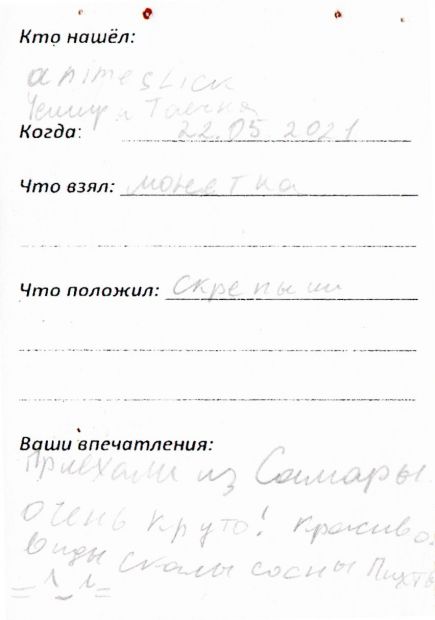 Кто нашёл:
animeslick
и
Когда: 22.05 2021
Что взял: монетка
Что положил: Скрепыши
Ваши впечатления:
Приехали из Самары.
очень круто! Красивоз
виды скалы сосны Пихты